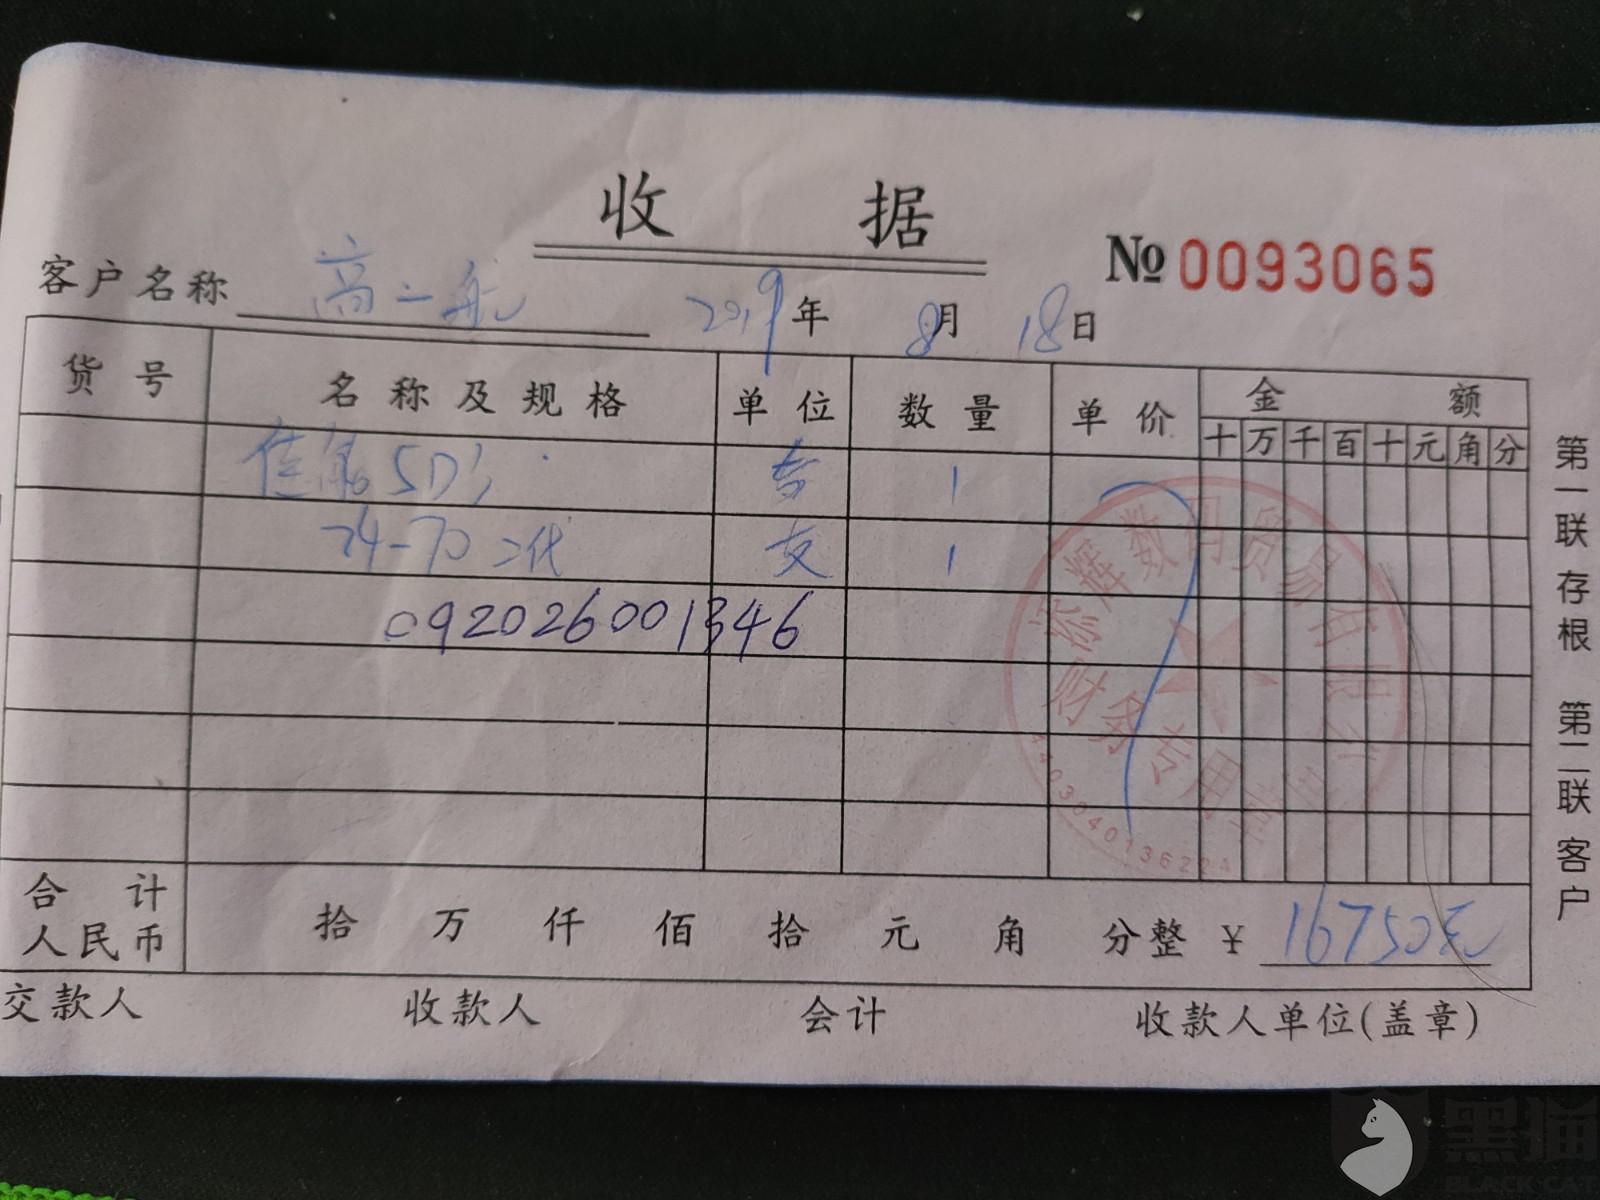 收 据
№ 0093065
客户名称 高一航 2019年 8月 18日
货号 名称及规格 单位 数量 单价 金额
十 万 千 百 十 元 角 分
佳能5D 1
24-70 二代 支 1
092026001346
辉数码贸易有限公
财务专用章
合计
人民币 拾 万 仟 佰 拾 元 角 分整 ¥ 16750元
交款人 收款人 会计 收款人单位(盖章)
第一联存根 第二联客户
黑猫
BLACK CAT